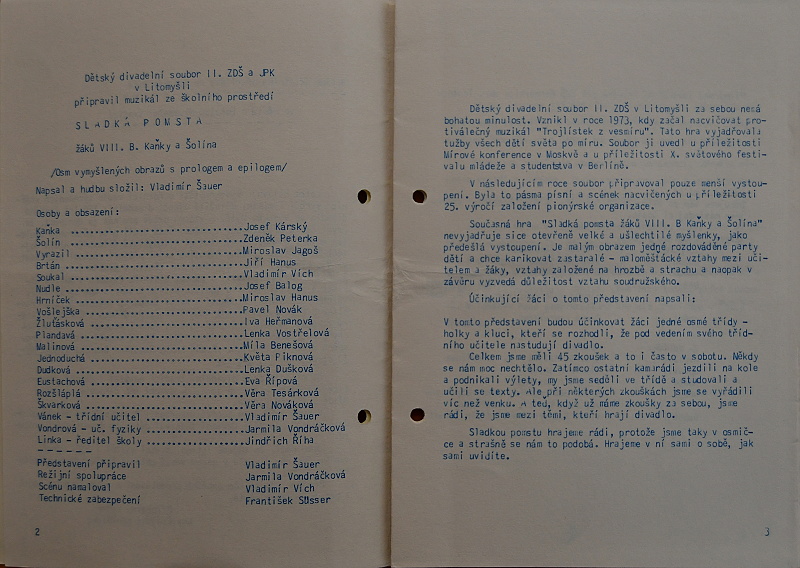 Dětský divadelní soubor II. ZDŠ a JPK
v Litomyšli
připravil muzikál ze školního prostředí
SLADKÁ POMSTA
žáků VIII. B. Kaňky a Šolína
/Osm vymyšlených obrazů s prologem a epilogem/
Napsal a hudbu složil: Vladimír Šauer
Osoby a obsazení:
Kaňka ........................Josef Kárský
Šolín ........................Zdeněk Peterka
Vyrazil ......................Miroslav Jagoš
Brtán ........................Jiří Hanus
Soukal .......................Vladimír Vích
Nudle ........................Josef Balog
Hrníček ......................Miroslav Hanus
Vošlejška ....................Pavel Novák
Žluťásková ...................Iva Heřmanová
Plandavá .....................Lenka Vostřelová
Malinová .....................Míla Benešová
Jednoduchá ...................Květa Fiknová
Dudková ......................Lenka Dušková
Eustachová ...................Eva Řípová
Rozšláplá ....................Věra Tesárková
Škvarková ....................Věra Nováková
Vánek - třídní učitel ........Vladimír Šauer
Vondrová - uč. fyziky ........Jarmila Vondráčková
Linka - ředitel školy ........Jindřich Říha
- - - - - -
Představení připravil Vladimír Šauer
Režijní spolupráce Jarmila Vondráčková
Scénu namaloval Vladimír Vích
Technické zabezpečení František Süsser
2
Dětský divadelní soubor II. ZDŠ v Litomyšli za sebou nemá
bohatou minulost. Vznikl v roce 1973, kdy začal nacvičovat pro-
tiválečný muzikál "Trojlístek z vesmíru". Tato hra vyjadřovala
tužby všech dětí světa po míru. Soubor ji uvedl u příležitosti
Mírové konference v Moskvě a u příležitosti X. světového festi-
valu mládeže a studentstva v Berlíně.
V následujícím roce soubor připravoval pouze menší vystou-
pení. Byla to pásma písní a scének nacvičených u příležitosti
25. výročí založení pionýrské organizace.
Současná hra "Sladká pomsta žáků VIII. B Kaňky a Šolína"
nevyjadřuje sice otevřeně velké a ušlechtilé myšlenky, jako
předešlá vystoupení. Je malým obrazem jedné rozdováděné party
dětí a chce karikovat zastaralé - maloměšťácké vztahy mezi uči-
telem a žáky, vztahy založené na hrozbě a strachu a naopak v
závěru vyzvedá důležitost vztahu soudružského.
Účinkující žáci o tomto představení napsali:
V tomto představení budou účinkovat žáci jedné osmé třídy -
holky a kluci, kteří se rozhodli, že pod vedením svého tříd-
ního učitele nastudují divadlo.
Celkem jsme měli 45 zkoušek a to i často v sobotu. Někdy
se nám moc nechtělo. Zatímco ostatní kamarádi jezdili na kole
a podnikali výlety, my jsme seděli ve třídě a studovali a
učili se texty. Ale při některých zkouškách jsme se vyřádili
víc než venku. A teď, když už máme zkoušky za sebou, jsme
rádi, že jsme mezi těmi, kteří hrají divadlo.
Sladkou pomstu hrajeme rádi, protože jsme taky v osmič-
ce a strašně se nám to podobá. Hrajeme v ní sami o sobě, jak
sami uvidíte.
3